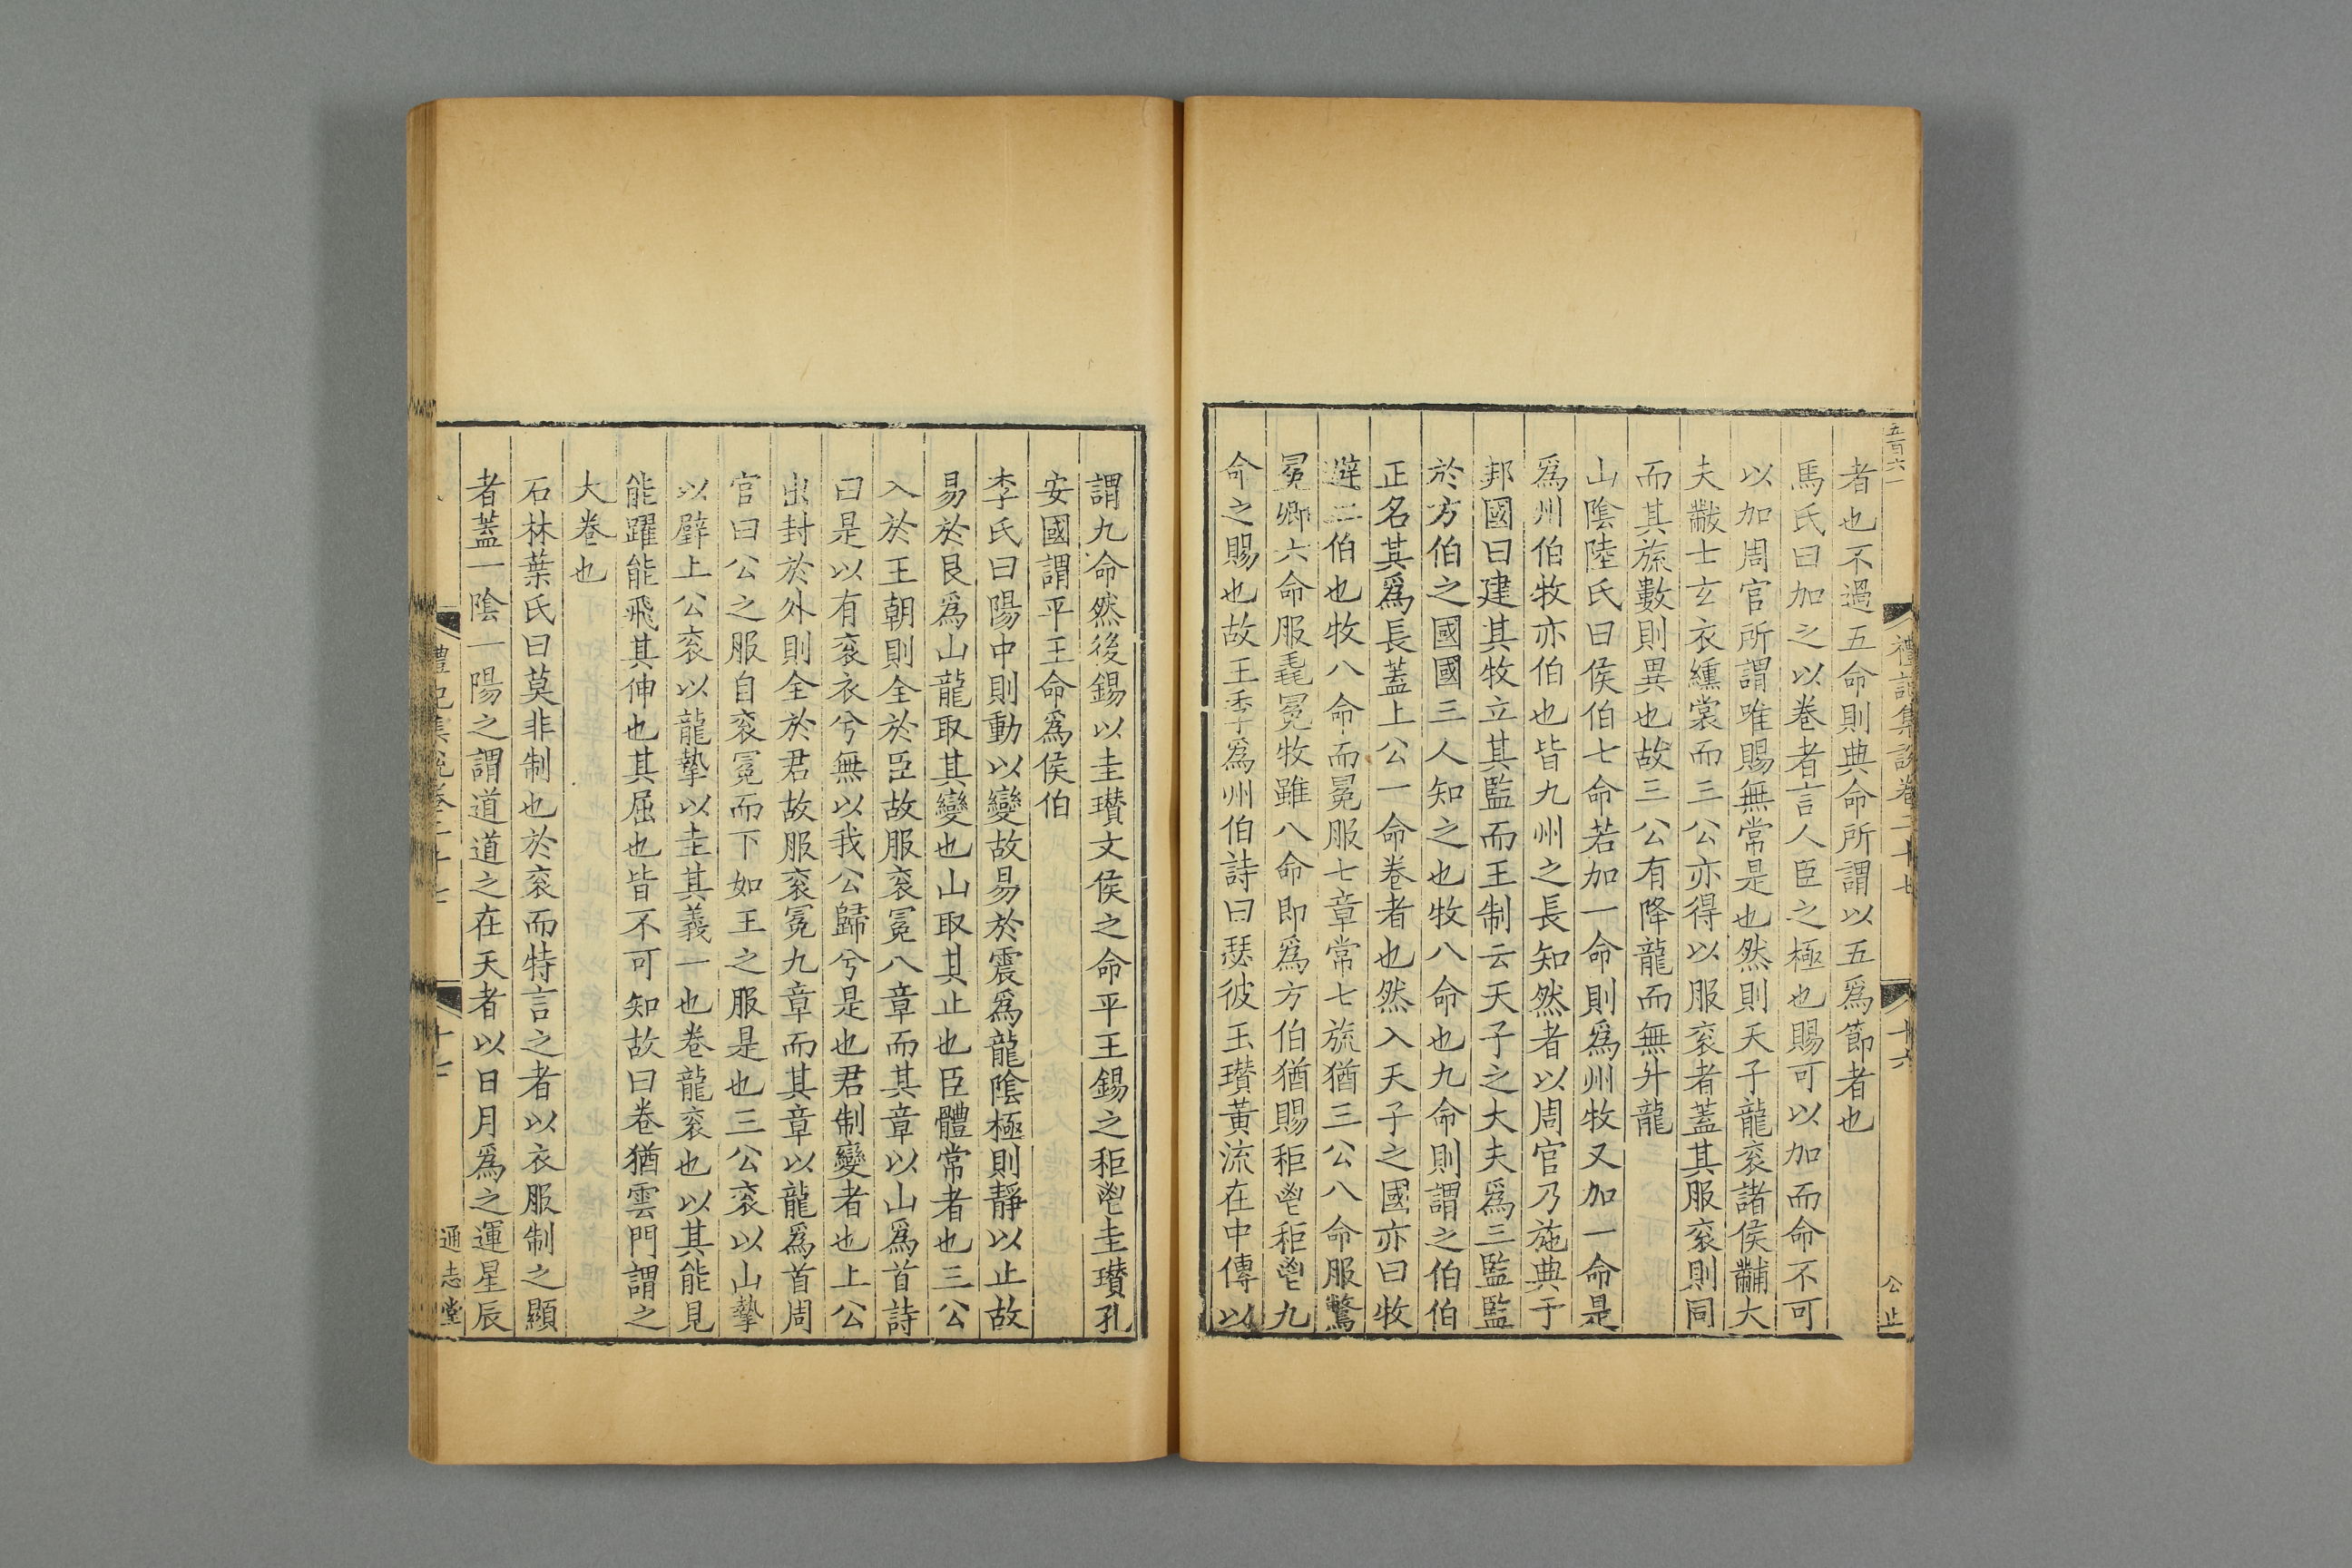 五百六一
禮記集説卷二十七
十六
公止
者也不過五命則典命所謂以五爲節者也
馬氏曰加之以卷者言人臣之極也賜可以加而命不可
以加周官所謂唯賜無常是也然則天子龍衮諸侯黼大
夫黻士玄衣纁裳而三公亦得以服衮者蓋其服衮則同
而其旒數則異也故三公有降龍而無升龍
山陰陸氏曰侯伯七命若加一命則爲州牧又加一命是
爲州伯牧亦伯也皆九州之長知然者以周官乃施典于
邦國曰建其牧立其監而王制云天子之大夫爲三監監
於方伯之國國三人知之也牧八命也九命則謂之伯伯
正名其爲長蓋上公一命卷者也然入天子之國亦曰牧
避二伯也牧八命而冕服七章常七旒猶三公八命服鷩
冕卿六命服毳冕牧雖八命即爲方伯猶賜秬鬯秬鬯九
命之賜也故王季爲州伯詩曰瑟彼玉瓚黃流在中傳以
謂九命然後錫以圭瓚文侯之命平王錫之秬鬯圭瓚孔
安國謂平王命爲侯伯
李氏曰陽中則動以變故易於震爲龍陰極則靜以止故
易於艮爲山龍取其變也山取其止也臣體常者也三公
入於王朝則全於臣故服衮冕八章而其章以山爲首詩
曰是以有衮衣兮無以我公歸兮是也君制變者也上公
出封於外則全於君故服衮冕九章而其章以龍爲首周
官曰公之服自衮冕而下如王之服是也三公衮以山摯
以璧上公衮以龍摯以圭其義一也卷龍衮也以其能見
能躍能飛其伸也其屈也皆不可知故曰卷猶雲門謂之
大卷也
石林葉氏曰莫非制也於衮而特言之者以衣服制之顯
者蓋一陰一陽之謂道道之在天者以日月爲之運星辰
禮記集説卷二十七
十七
通志堂